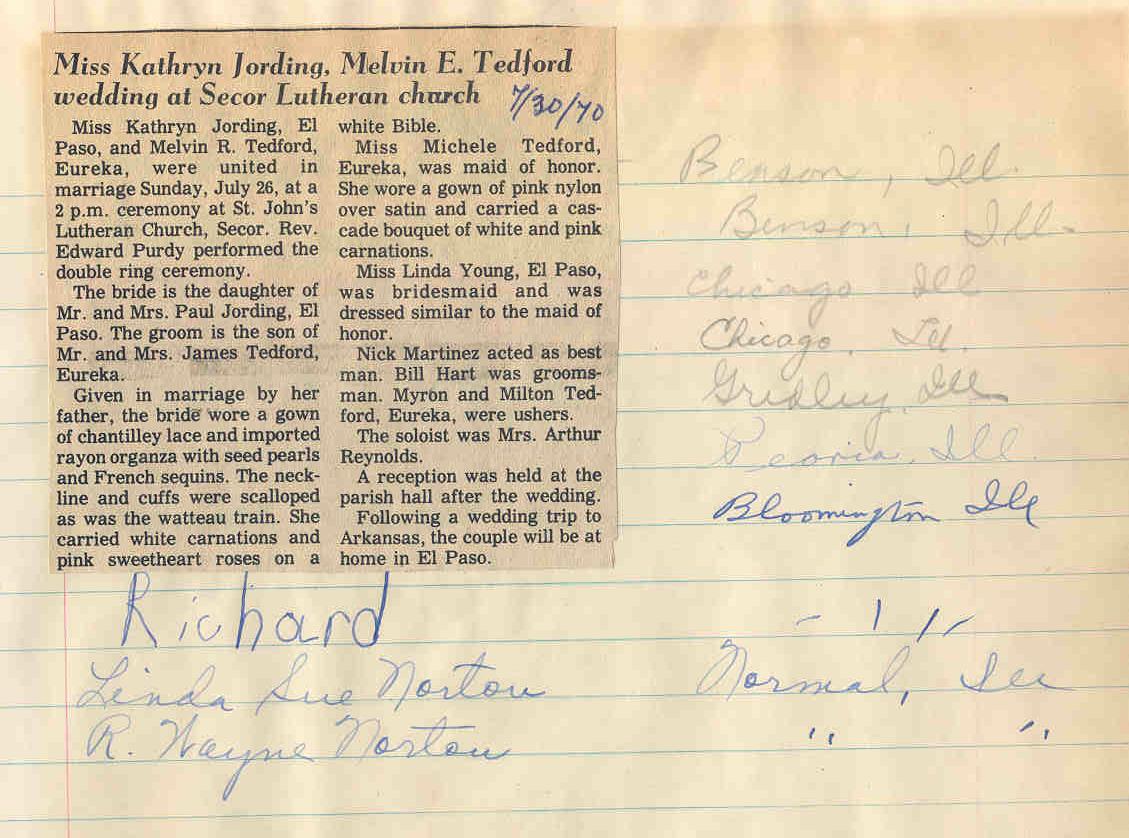 Miss Kathryn Jording, Melvin E. Tedford
wedding at Secor Lutheran church
7/30/70
Miss Kathryn Jording, El
Paso, and Melvin R. Tedford,
Eureka, were united in
marriage Sunday, July 26, at a
2 p.m. ceremony at St. John's
Lutheran Church, Secor. Rev.
Edward Purdy performed the
double ring ceremony.
The bride is the daughter of
Mr. and Mrs. Paul Jording, El
Paso. The groom is the son of
Mr. and Mrs. James Tedford,
Eureka.
Given in marriage by her
father, the bride wore a gown
of chantilley lace and imported
rayon organza with seed pearls
and French sequins. The neck-
line and cuffs were scalloped
as was the watteau train. She
carried white carnations and
pink sweetheart roses on a
white Bible.
Miss Michele Tedford,
Eureka, was maid of honor.
She wore a gown of pink nylon
over satin and carried a cas-
cade bouquet of white and pink
carnations.
Miss Linda Young, El Paso,
was bridesmaid and was
dressed similar to the maid of
honor.
Nick Martinez acted as best
man. Bill Hart was grooms-
man. Myron and Milton Ted-
ford, Eureka, were ushers.
The soloist was Mrs. Arthur
Reynolds.
A reception was held at the
parish hall after the wedding.
Following a wedding trip to
Arkansas, the couple will be at
home in El Paso.
Benson, Ill.
Benson, Ill.
Chicago Ill
Chicago, Ill.
Gridley, Ill
Peoria, Ill.
Bloomington Ill
Richard " "
Linda Sue Norton Normal, Ill
R. Wayne Norton " "